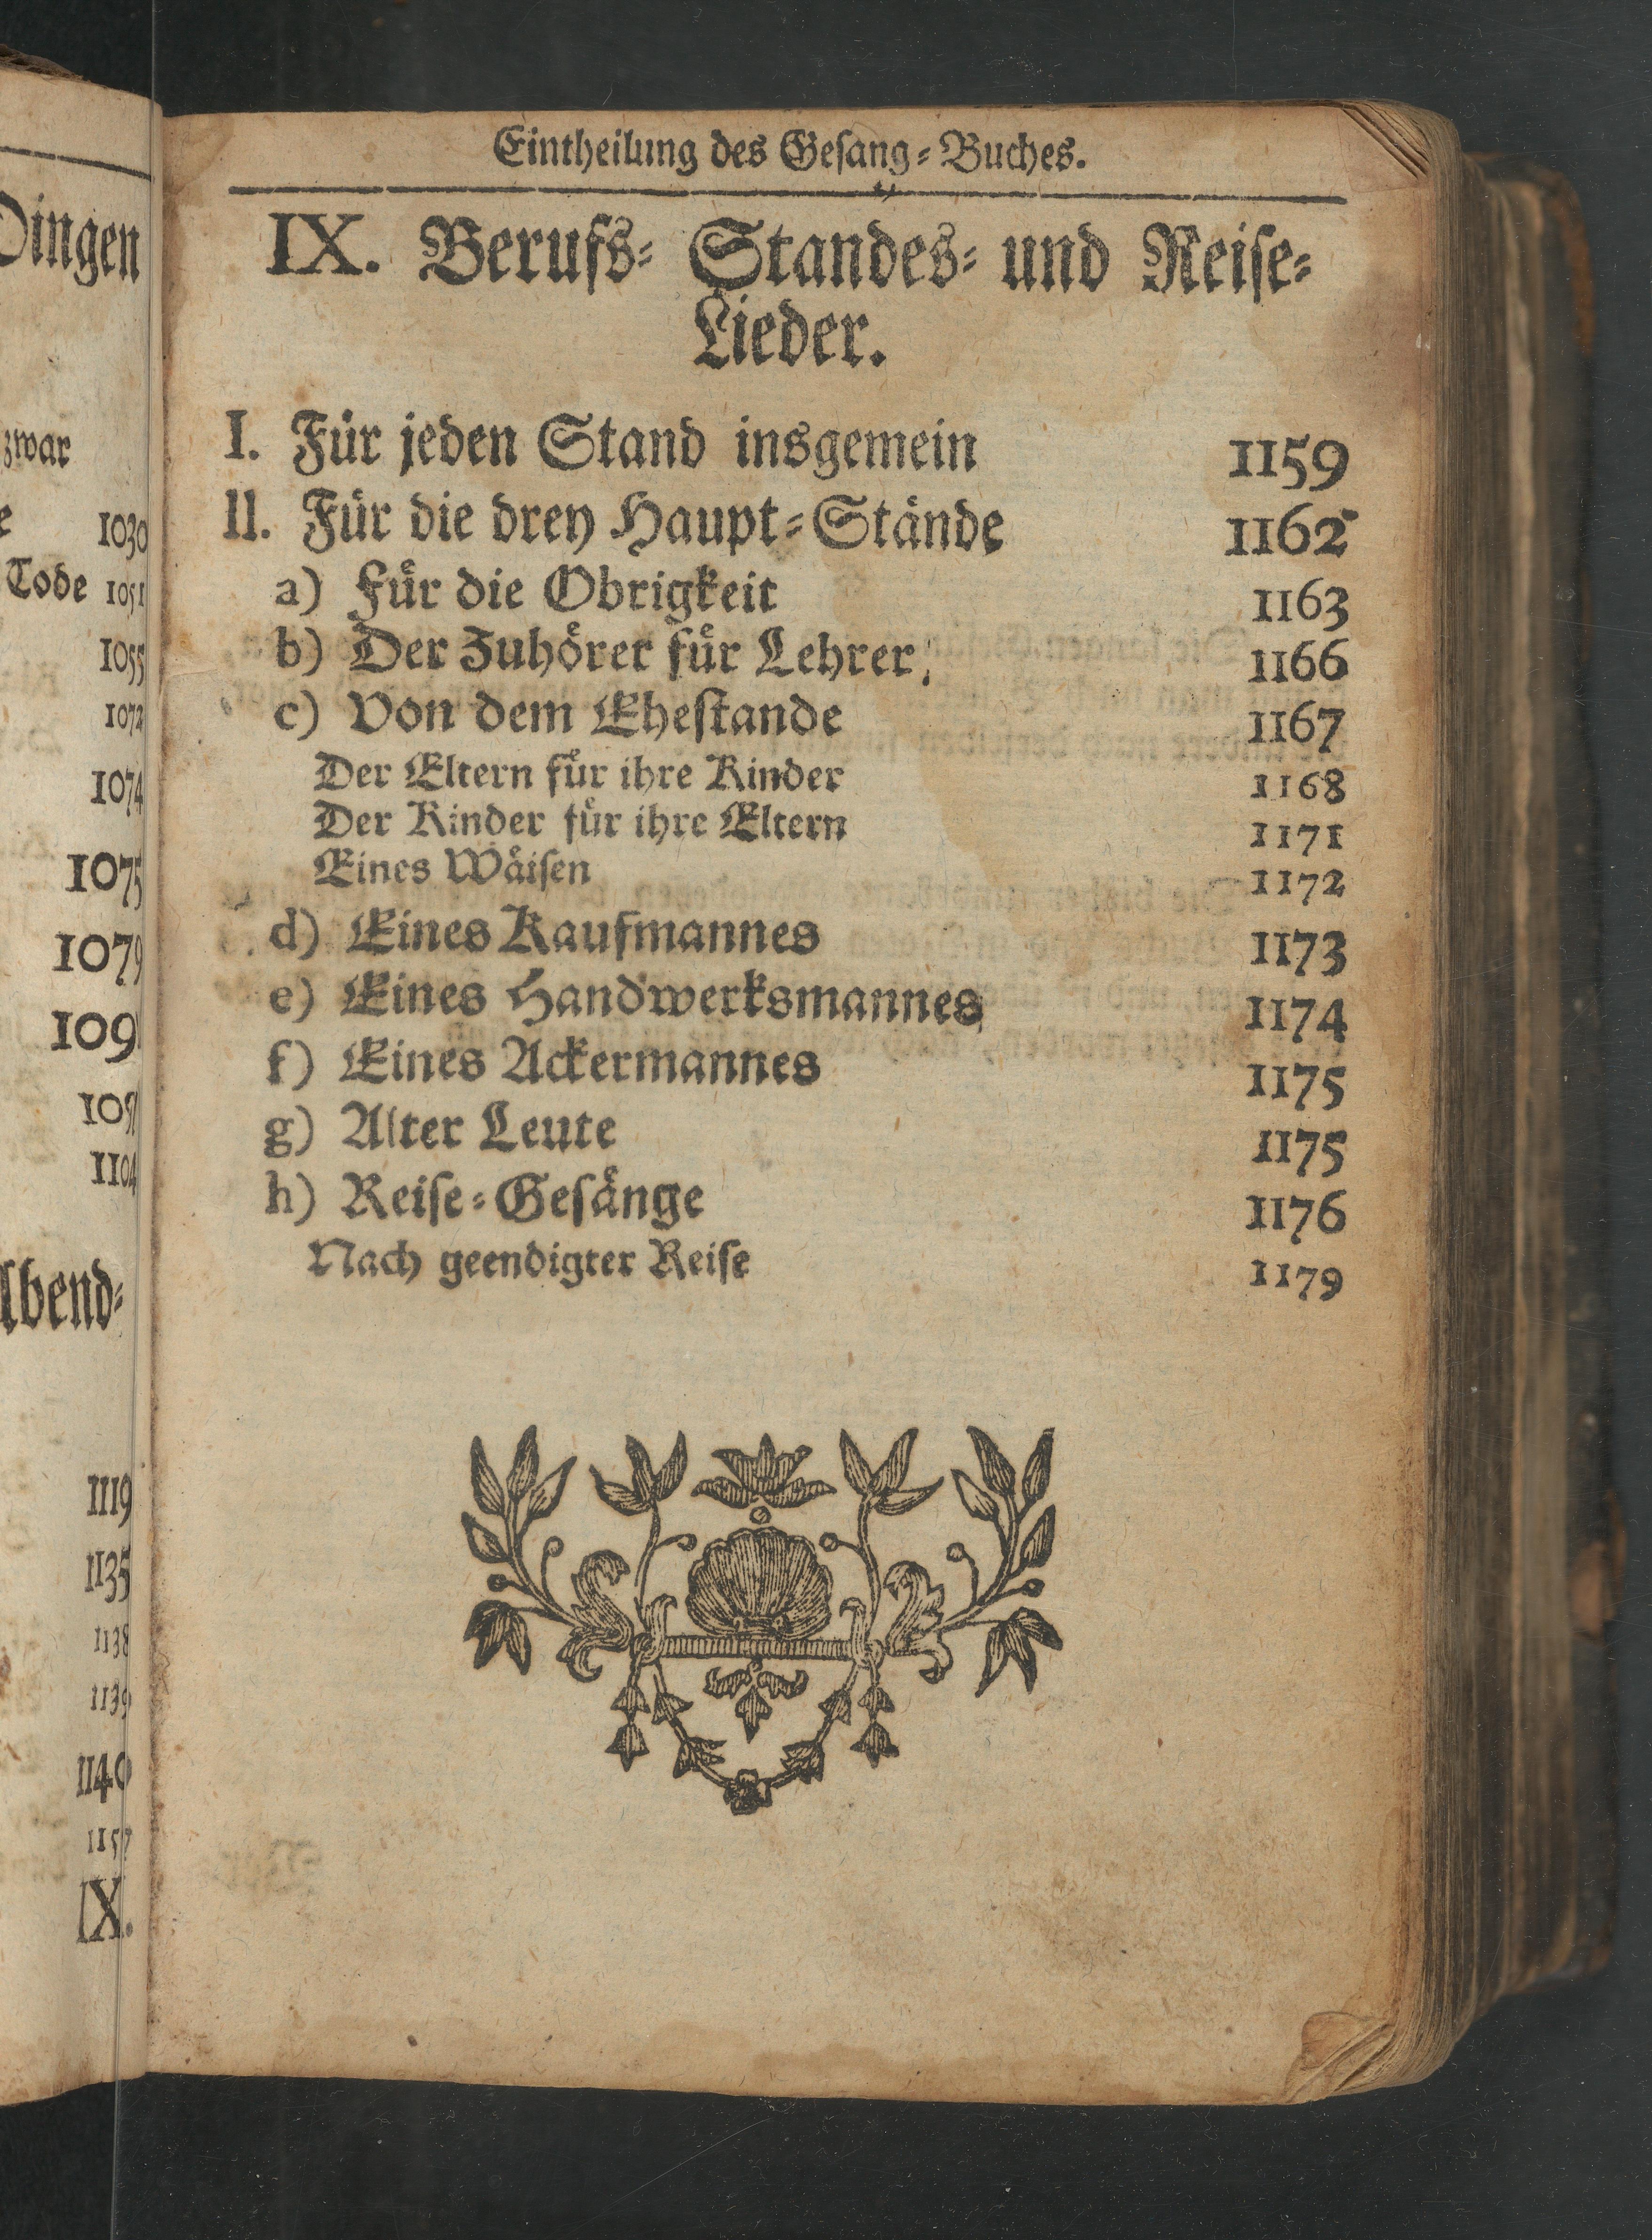 Dingen
zwar
1030
Tode 1051
1055
1072
1074
1075
1079
1104
Abend-
1119
1135
1138
1139
1140
1157
IX.
Eintheilung des Gesang-Buches.
IX. Berufs- Standes- und Reise-
Lieder.
I. Für jeden Stand insgemein 1159
II. Für die drey Haupt-Stände 1162
a) Für die Obrigkeit 1163
b) Der Zuhörer für Lehrer, 1166
c) Von dem Ehestande 1167
Der Eltern für ihre Kinder 1168
Der Kinder für ihre Eltern 1171
Eines Wäisen 1172
d) Eines Kaufmannes 1173
e) Eines Handwerksmannes 1174
f) Eines Ackermannes 1175
g) Alter Leute 1175
h) Reise-Gesänge 1176
Nach geendigter Reise 1179